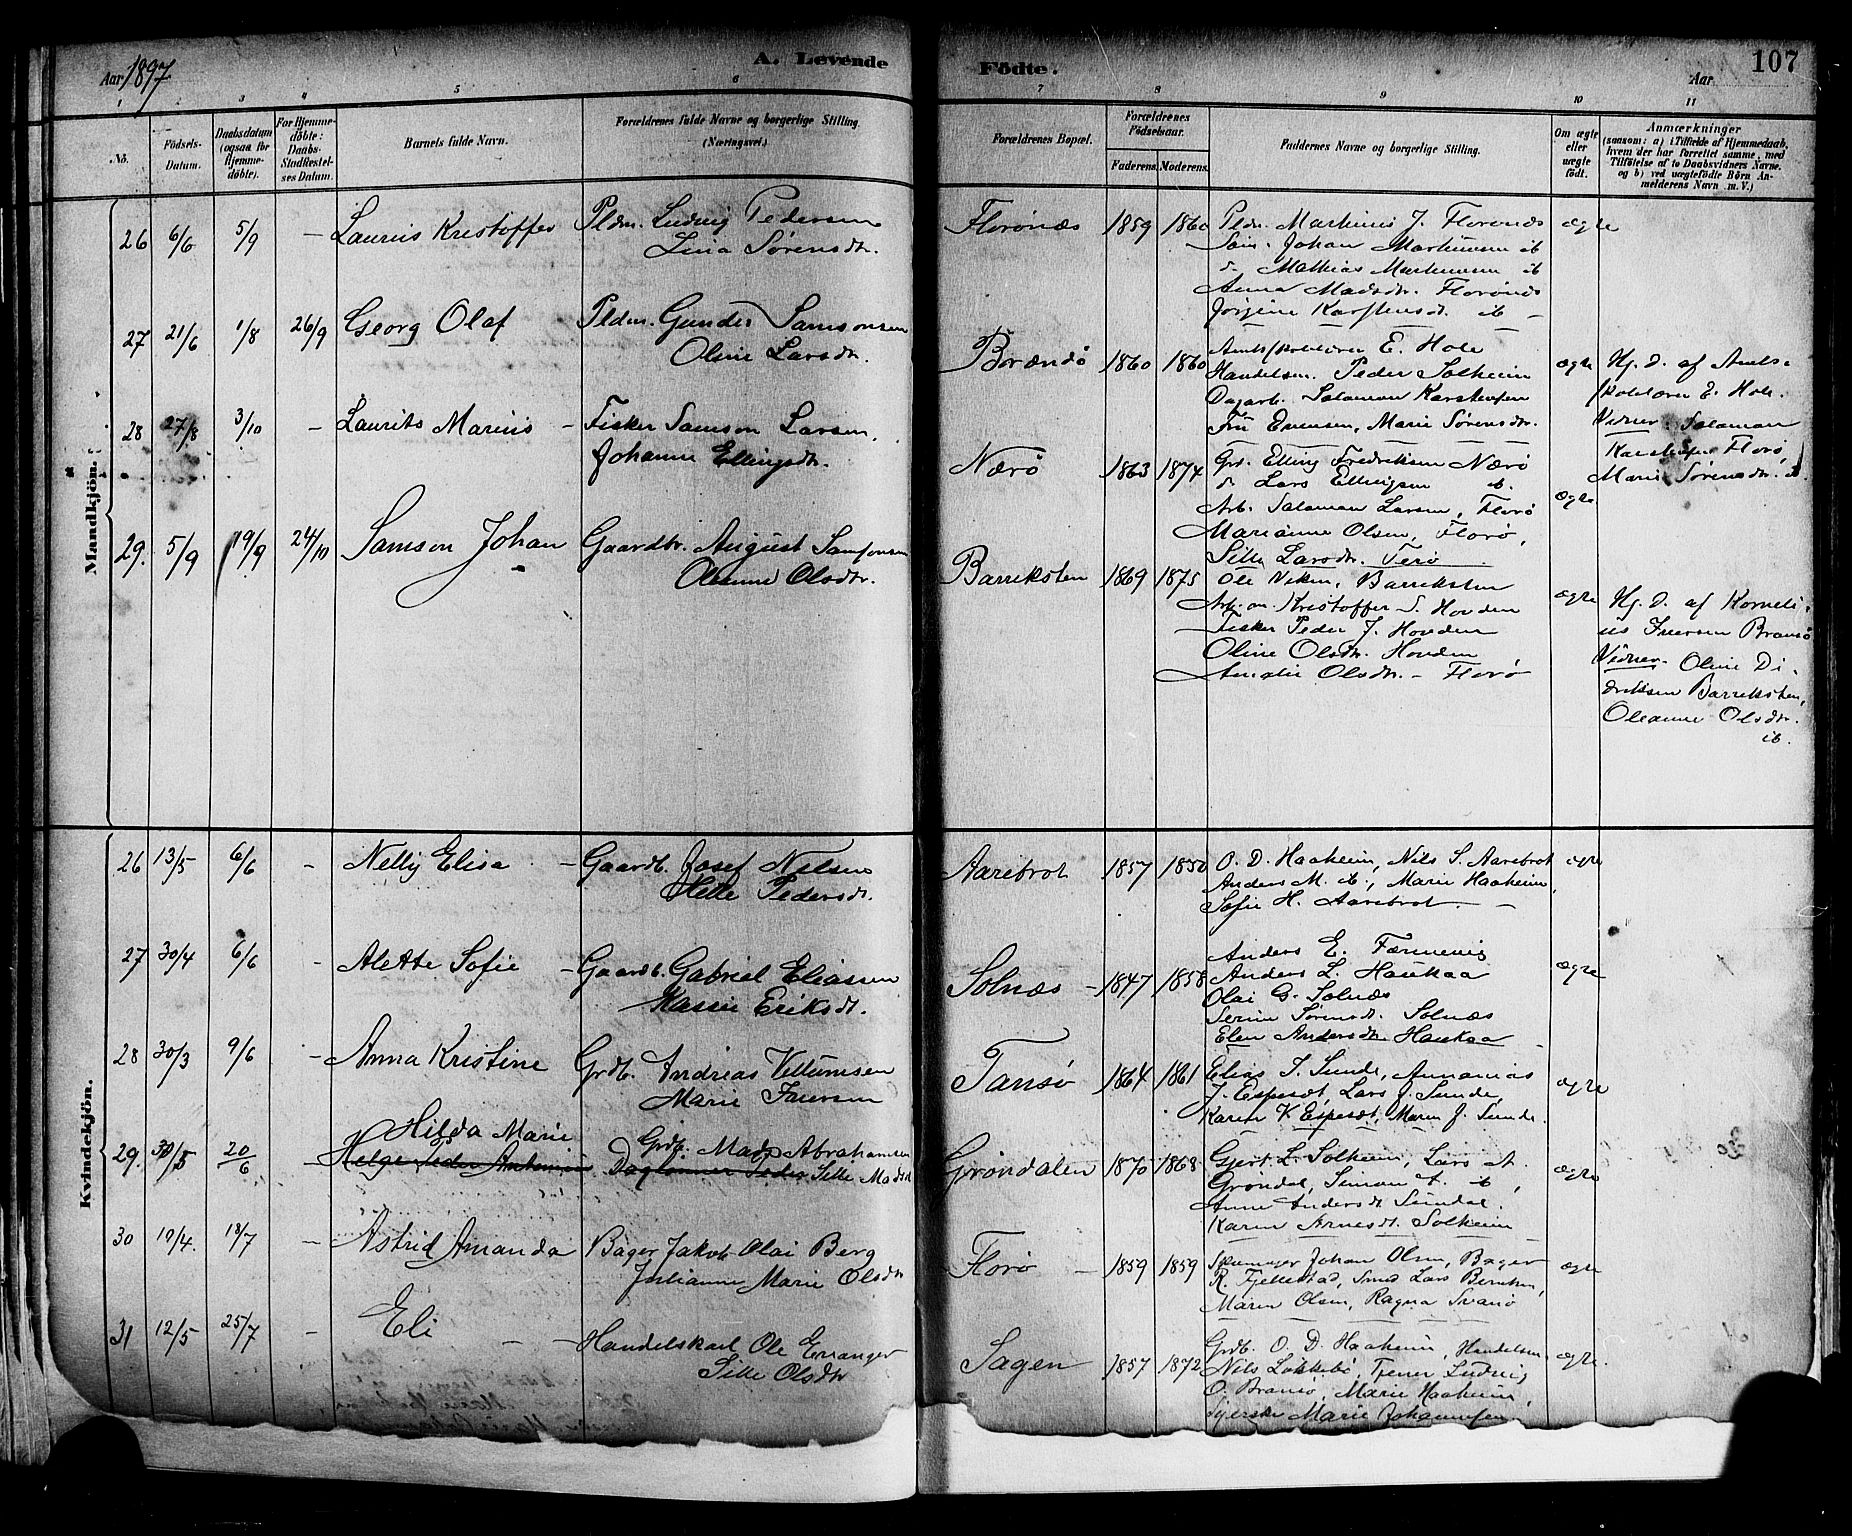 Aar 1897
A. Levende
Födte.
Aar
107
1
3
4
5
6
7
8
9
10
11
No.
Födsels-
Datum.
Daabsdatum
(ogsaa for
Hjemme-
döbte).
For Hjemme-
döbte:
Daabs-
Stadfæstel-
ses Datum.
Barnets fulde Navn.
Forældrenes fulde Navne og borgerlige Stilling
(Næringsvei.)
Forældrenes Bopæl.
Forældrenes
Födselsaar.
Faderens.
Moderens.
Faddernes Navne og borgerlige Stilling.
Om ægte
eller
uægte
födt.
Anmærkninger
(saasom: a) i Tilfælde af Hjemmedaab,
hvem der har forrettet samme, med
Tilföielse af to Daabsvidners Navne,
og b) ved uægtefödte Börn An-
melderens Navn m. V.)
Mandkjön.
26 6/6 5/9 - Laurits Kristoffer Pldm. Ludvig Pedersen
Lina Sørensdtr.
Florønæs 1859 1860 Pldm. Martinus J. Florønæs ægte
Johan Martinusen ib
d. Mathias Martinusen ib
Anna Madsdtr. Florønæs
Jørgine Karstensd. ib -
27 21/6 1/8 26/9 Georg Olaf Pldm. Gunder Samsonsen
Oline Larsdtr.
Brændø 1860 1860 Amtsskolelærer E. Hole ægte
Handelsm. Peder Solheim
Dagarb. Salamon Karstensen
Fru Ennesen, Marie Sørensdtr.
Hj. D. af Amts-
skolelærer E. Hole.
Vidner: Salaman
Karstensen Florø,
Marie Sørensdtr. ib.
28 27/8 3/10 - Laurits Marius - Fisker Samson Larsen,
Johanne Ellingsdtr.
Nærø 1863 1874 Grb. Elling Fredriksen Nærø ægte
d. Lars Ellingsen ib.
Arb. Salaman Larsen, Florø
Marianne Olsen, Florø,
Sille Larsdtr.
29. 5/9 19/9 24/10 Samson Johan Gaardbr. August Samsonsen
Oleanne Olsdtr.
Barreksten 1869 1875 Ole Niksen, Barreksten ægte
Arb.m. Kristoffer S. Hovden
Fisker Peder J. Hovden
Oline Olsdtr. Hovden
Amalie Olsdtr. - Florø
Hj. D. af Korneli-
us Iversen Bransø
Vidner - Oline Di-
driksen Barreksten,
Oleanne Olsdtr.
ib.
Kvindekjön.
26 13/5 6/6 - Nelly Elisa - Gaardb. Josef Nilsen
Sille Pedersdtr.
Aarebrot 1857 1850 O. D. Haaheim, Nils S. Aarebrot ægte
Anders M. ib., Marie Haaheim,
Sofie H. Aarebrot -
27 30/4 6/6 - Alette Sofie - Gaardb. Gabriel Eliassen
Kassie Eriksdt.
Solnæs - 1847 1858 Anders E. Færnevig ægte
Anders L. Haukaa
Olai G. Solnæs
Serine Sørensdt. Solnæs
Elen Andersdtr. Haukaa -
28 30/3 9/6 - Anna Kristine Grdb. Andreas Villumsen
Marie Iversen
Tansø 1864 1861 Elias J. Sunde, Annanias ægte
J. Espesdt, Lars J. Sunde,
Karen V. Espesdt, Maren J. Sunde
29. 30/5 20/6 Hilda Marie Grdb. Mads Abrahamsen
Helge Peder Dagлønner Peder Sille Madsd
Grøndalen 1870 1868 Gjert L. Solheim, Lars A. ægte
Grøndal, Simon A. ib,
Anne Andersdt Sundal.
Karen Arnesdt. Solheim -
30 19/4. 18/7 - Astrid Amanda Bager Jakob Olai Berg
Julianne Marie Olsdtr
Florø - 1859 1859 Skomager Johan Olsen, Bager ægte
R. Fjellestad, Smed Lars Berntsen,
Maren Olsen, Ragna Svanø
31 12/5 25/7 - Eli - - Handelskarl Ole Erranger
Sille Olsdtr
Sagen 1857 1872 Grdb. O. D. Haaheim, Handelsm. ægte.
Nils Løkkebø, Tjener Ludvig
O. Bransø, Marie Haaheim,
Syerske Marie Johannesen